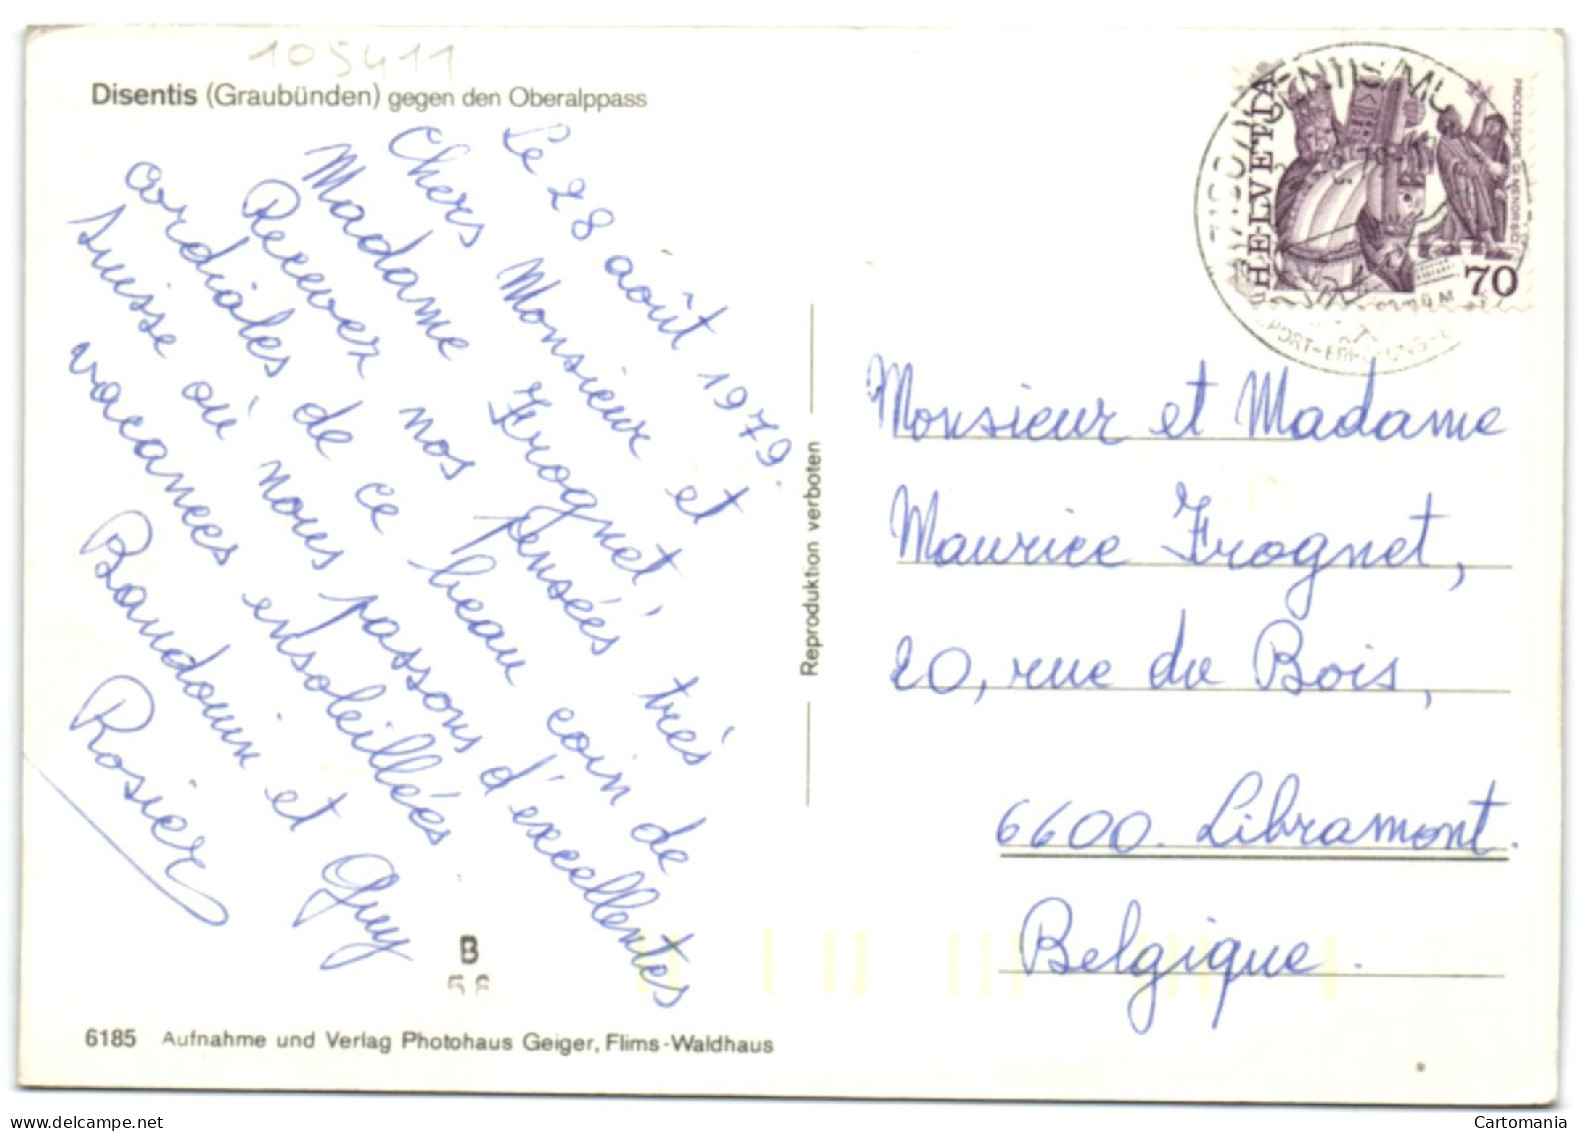 105411
Disentis (Graubünden) gegen den Oberalppass
Le 28 août 1979.
Chers Monsieur et
Madame Frognet,
Recevez nos pensées très
cordiales de ce beau coin de
Suisse où nous passons d'excellentes
vacances ensoleillées.
Baudouin et Guy
Rosier
B
6185 Aufnahme und Verlag Photohaus Geiger, Flims-Waldhaus
Reproduktion verboten
HELVETIA
PROCESSIONE DI MENDRISIO
70
Monsieur et Madame
Maurice Frognet,
20, rue du Bois,
6600 Libramont.
Belgique.
Cartomania